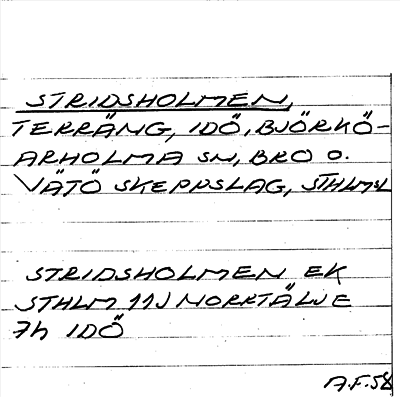 STRIDSHOLMEN,
TERRÄNG, IDÖ, BJÖRKÖ-
ARHOLMA SN, BRO O.
VÄTÖ SKEPPSLAG, STHLMSL
STRIDSHOLMEN EK
STHLM 11J NORRTÄLJE
7h IDÖ
A.F. 58